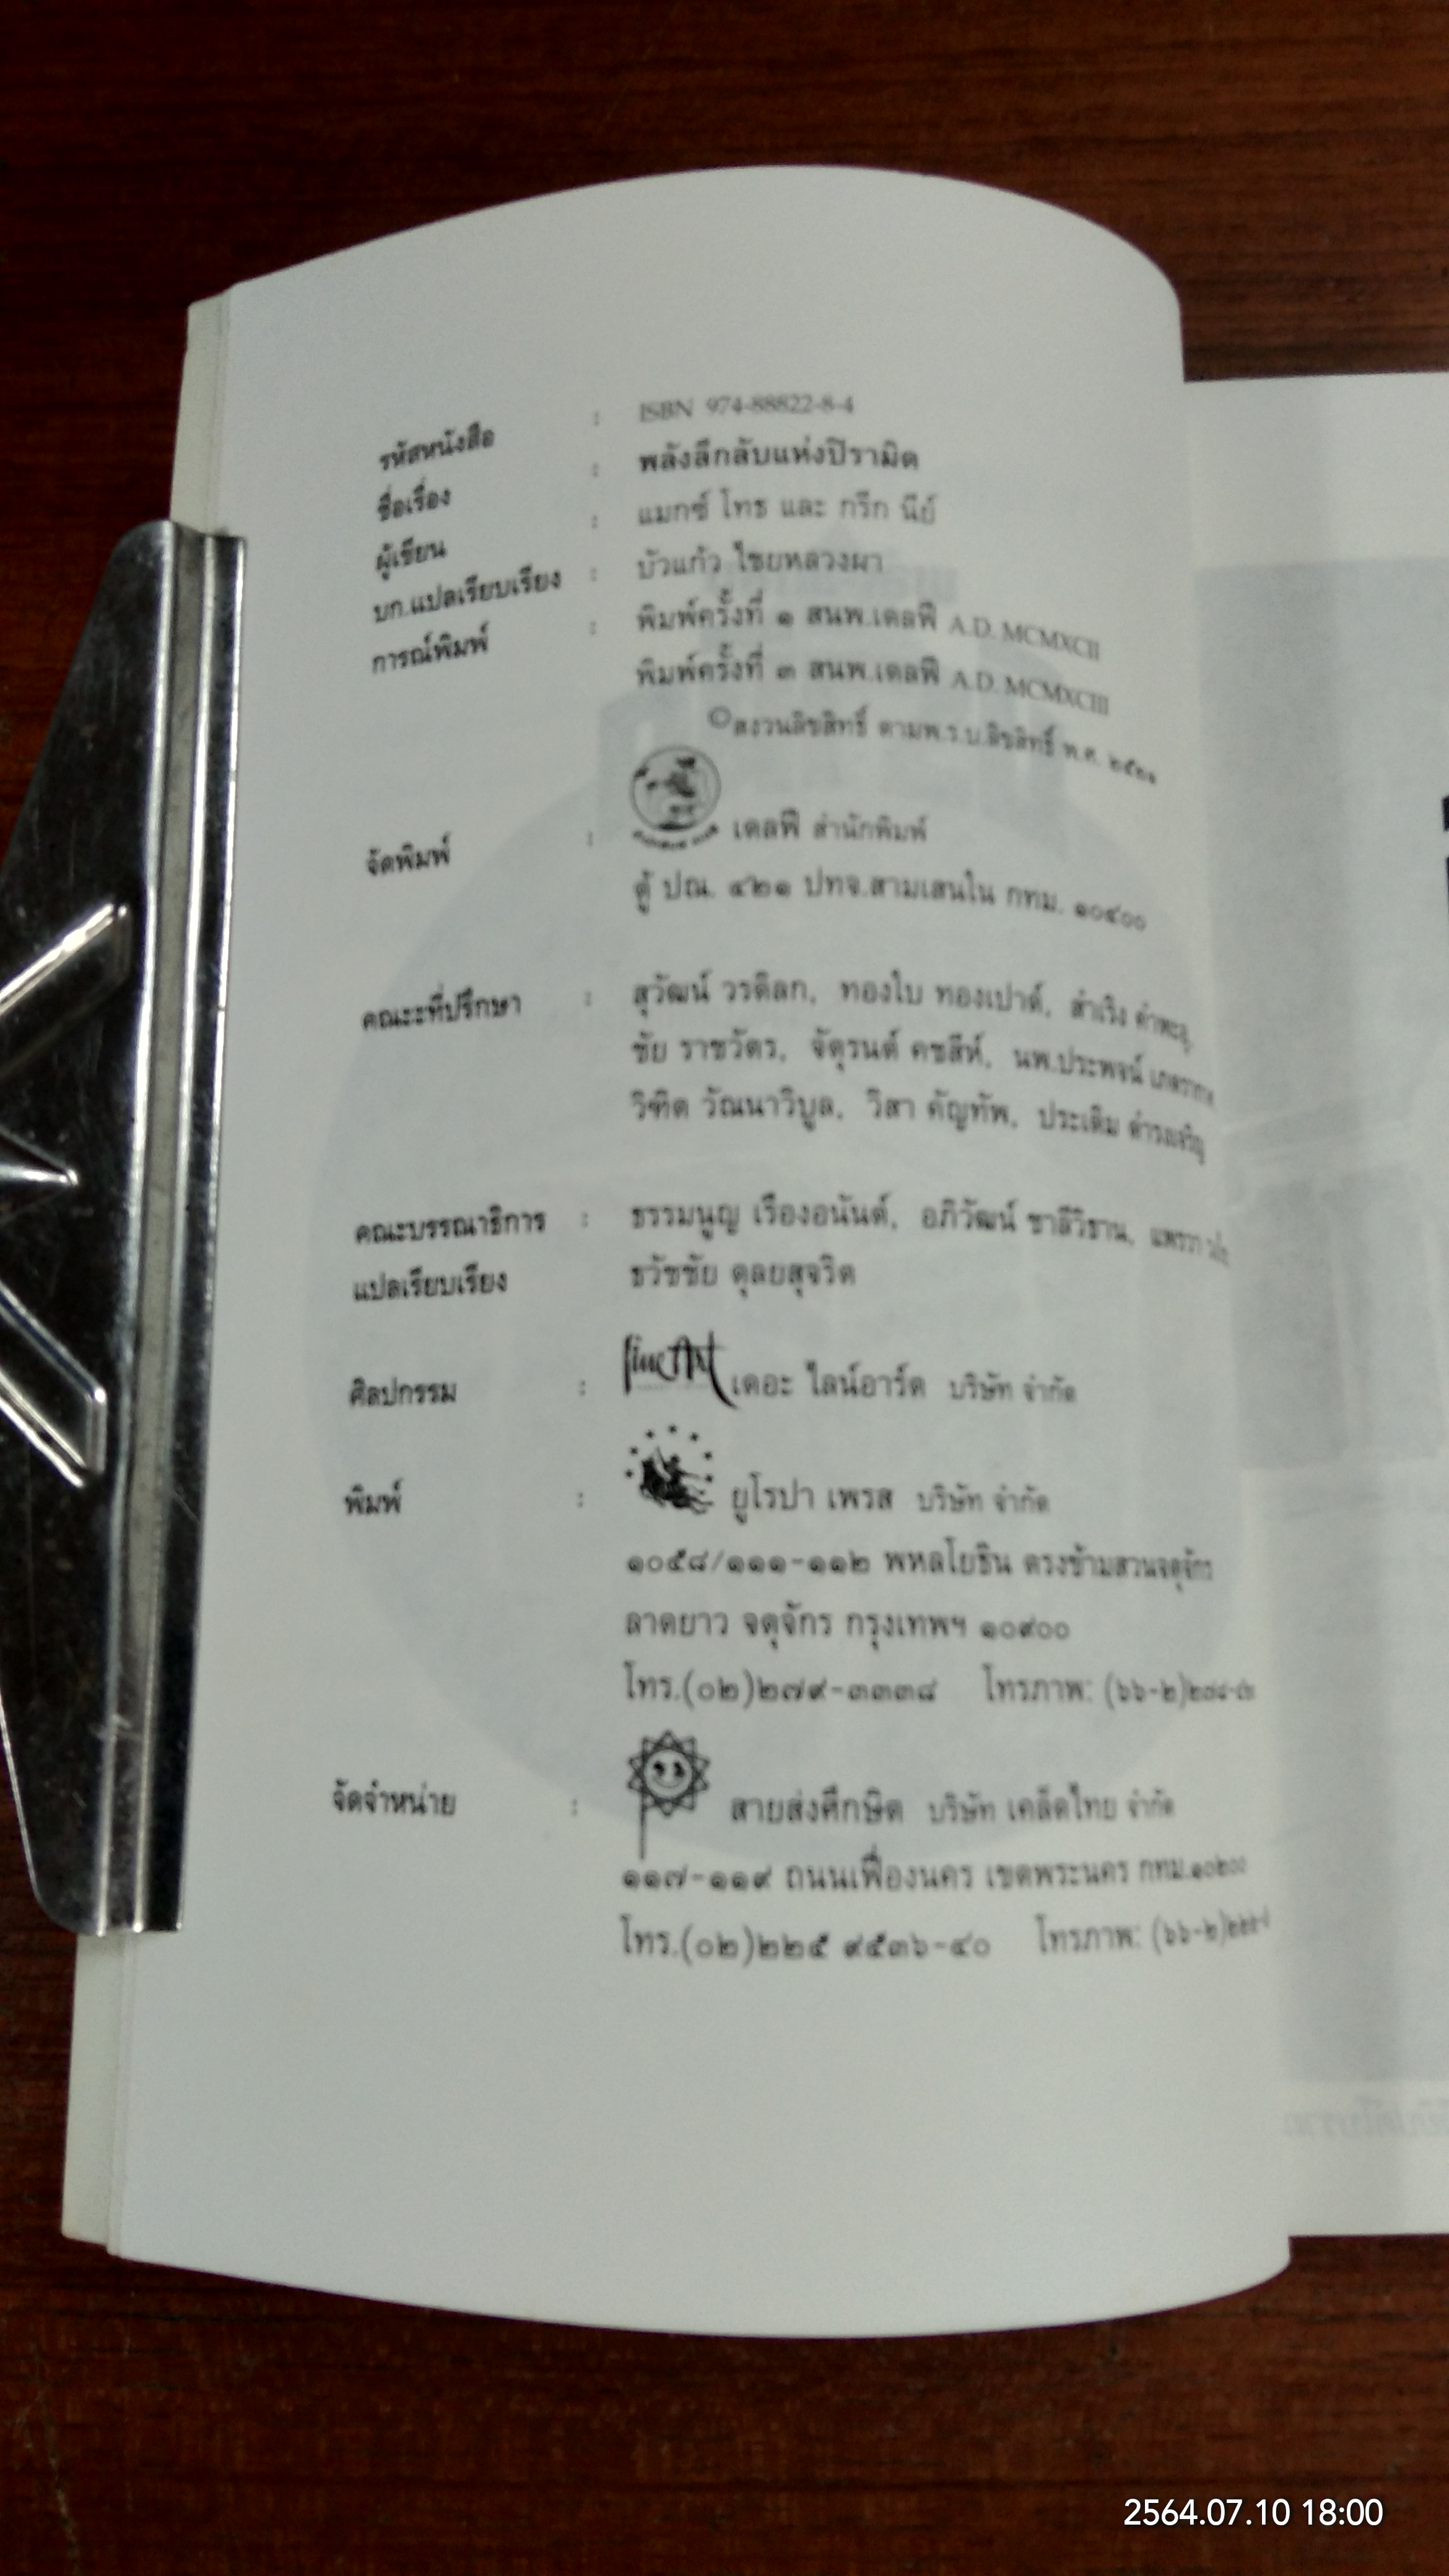 รหัสหนังสือ : ISBN 974-88822-8-4
ชื่อเรื่อง : พลังลึกลับแห่งปิรามิด
ผู้เขียน : แมกซ์ โทธ และ กรีก นีย์
บก.แปลเรียบเรียง : บัวแก้ว ไชยหลวงผา
การณ์พิมพ์ : พิมพ์ครั้งที่ ๑ สนพ.เดลฟี A.D. MCMXCII
พิมพ์ครั้งที่ ๓ สนพ.เดลฟี A.D. MCMXCIII
©สงวนลิขสิทธิ์ ตามพ.ร.บ.ลิขสิทธิ์ พ.ศ. ๒๕๒๑
จัดพิมพ์ : เดลฟี สำนักพิมพ์
ตู้ ปณ. ๔๒๑ ปทจ.สามเสนใน กทม. ๑๐๔๐๐
คณะะที่ปรึกษา : สุวัฒน์ วรดิลก, ทองใบ ทองเปาด์, สำเริง คำพะอุ,
ชัย ราชวัตร, จัตุรนต์ คชสีห์, นพ.ประพจน์
วิฑิต วัณนาวิบูล, วิสา คัญทัพ, ประเดิม ดำรงเจริญ
คณะบรรณาธิการ : ธรรมนูญ เรืองอนันต์, อภิวัฒน์ ชาลีวิธาน,
แปลเรียบเรียง ธวัชชัย ดุลยสุจริต
ศิลปกรรม : line Art เดอะ ไลน์อาร์ต บริษัท จำกัด
พิมพ์ : ยูโรปา เพรส บริษัท จำกัด
๑๐๕๘/๑๑๑-๑๑๒ พหลโยธิน ตรงข้ามสวนจตุจักร
ลาดยาว จตุจักร กรุงเทพฯ ๑๐๙๐๐
โทร.(๐๒)๒๗๙-๓๓๓๘ โทรภาพ: (๖๖-๒)
จัดจำหน่าย : สายส่งศึกษิต บริษัท เคล็ดไทย จำกัด
๑๑๗-๑๑๙ ถนนเฟื่องนคร เขตพระนคร กทม.๑๐๒๐๐
โทร.(๐๒)๒๒๕ ๙๕๓๖-๔๐ โทรภาพ: (๖๖-๒)
2564.07.10 18:00